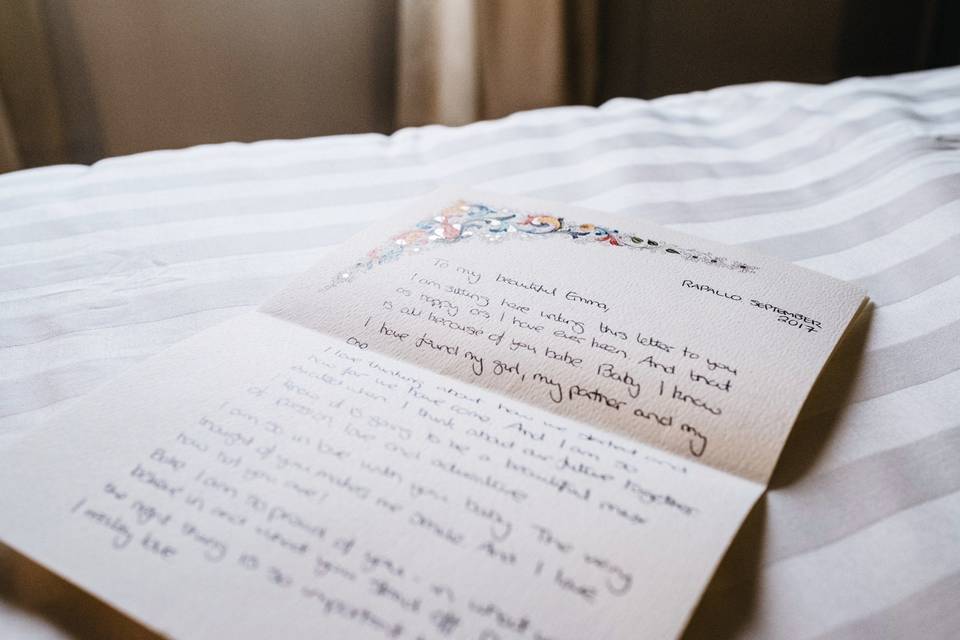 RAPALLO SEPTEMBER
2017
To my beautiful Emma,
I am sitting here writing this letter to you
as happy as I have ever been. And that
is all because of you babe Baby I know
I have found my girl, my partner and my
I love thinking about how we started and
how far we have come. And I am so
excited when I think about our future together
I know it is going to be a beautiful
of passion love and adventure
I am so in love with you baby The very
thought of you makes me smile And I love
how hot you are!
Babe I am so proud of you. in what you
believe in and what you stand
the right thing is so important
I really love